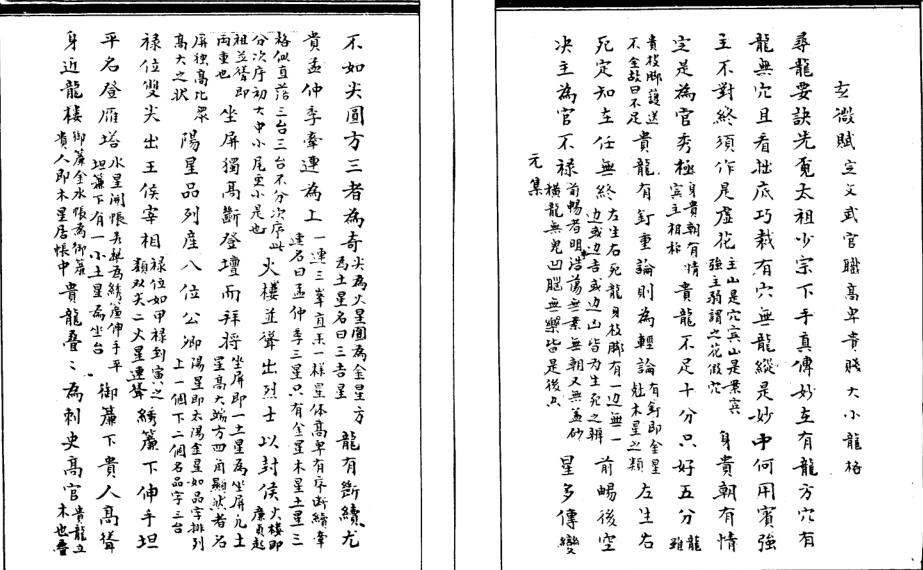 玄微賦定文武官職高卑貴賤大小龍格
尋龍要訣先覓太祖少宗下手真傳妙在有龍方穴有
龍無穴且看拙底巧裁有穴無龍縱是妙中何用賓強
主不對終須作是虛花 主山是穴賓山是案賓 強主弱謂之花假穴 身貴朝有情
定是為官秀極 身貴朝有情 賓主相和 貴龍不足十分只好五分 雖龍
貴枝脚護送 不全故曰不足 貴龍有釘重論則為輕論 有釘即金星 尅木星之類 左生右
死定知主任無終 左生右死龍身枝脚有一边無一 边或边吉或边凶皆为生死之辨 前暢後空
决主為官不禄 前暢者明浩蕩無案無朝又無盖砂 橫龍無鬼凹腦無樂皆是後空 星多傳變
元集
不如尖圓方三者為奇 尖為火星圓為金星方 為土星名曰三吉星 龍有斷續尤
貴孟仲季牽連為上 一連三峯直來一樣星体高卑有序断續牽 連名曰孟仲季三星只有金星木星土星三
格似直落三台三台不分次序此 分次序初大中小尾更小是也 火樓並聳出烈士以封侯 火樓即 廉貞起
祖並聳即 兩重也 坐屏獨高斷登壇而拜將 坐屏即一土星為坐屏凡土 星高大端方四角顯然者名
屏独高比眾 高大之状 陽星品列産八位公卿 陽星即太陽金星如品字排列 上一個下二個名品字三台
禄位雙尖出王侯宰相 禄位如甲禄到寅之 類双尖二火星連聳 綉簾下伸手坦
平名登雁塔 水星開帳為綉簾伸手平 坦簾下有一小土星為坐台 御簾下貴人高聳
身近龍樓 御簾金水帳為御簾 貴人即木星居帳中 貴龍疊〻為刺史高官 貴龍立 木也疊